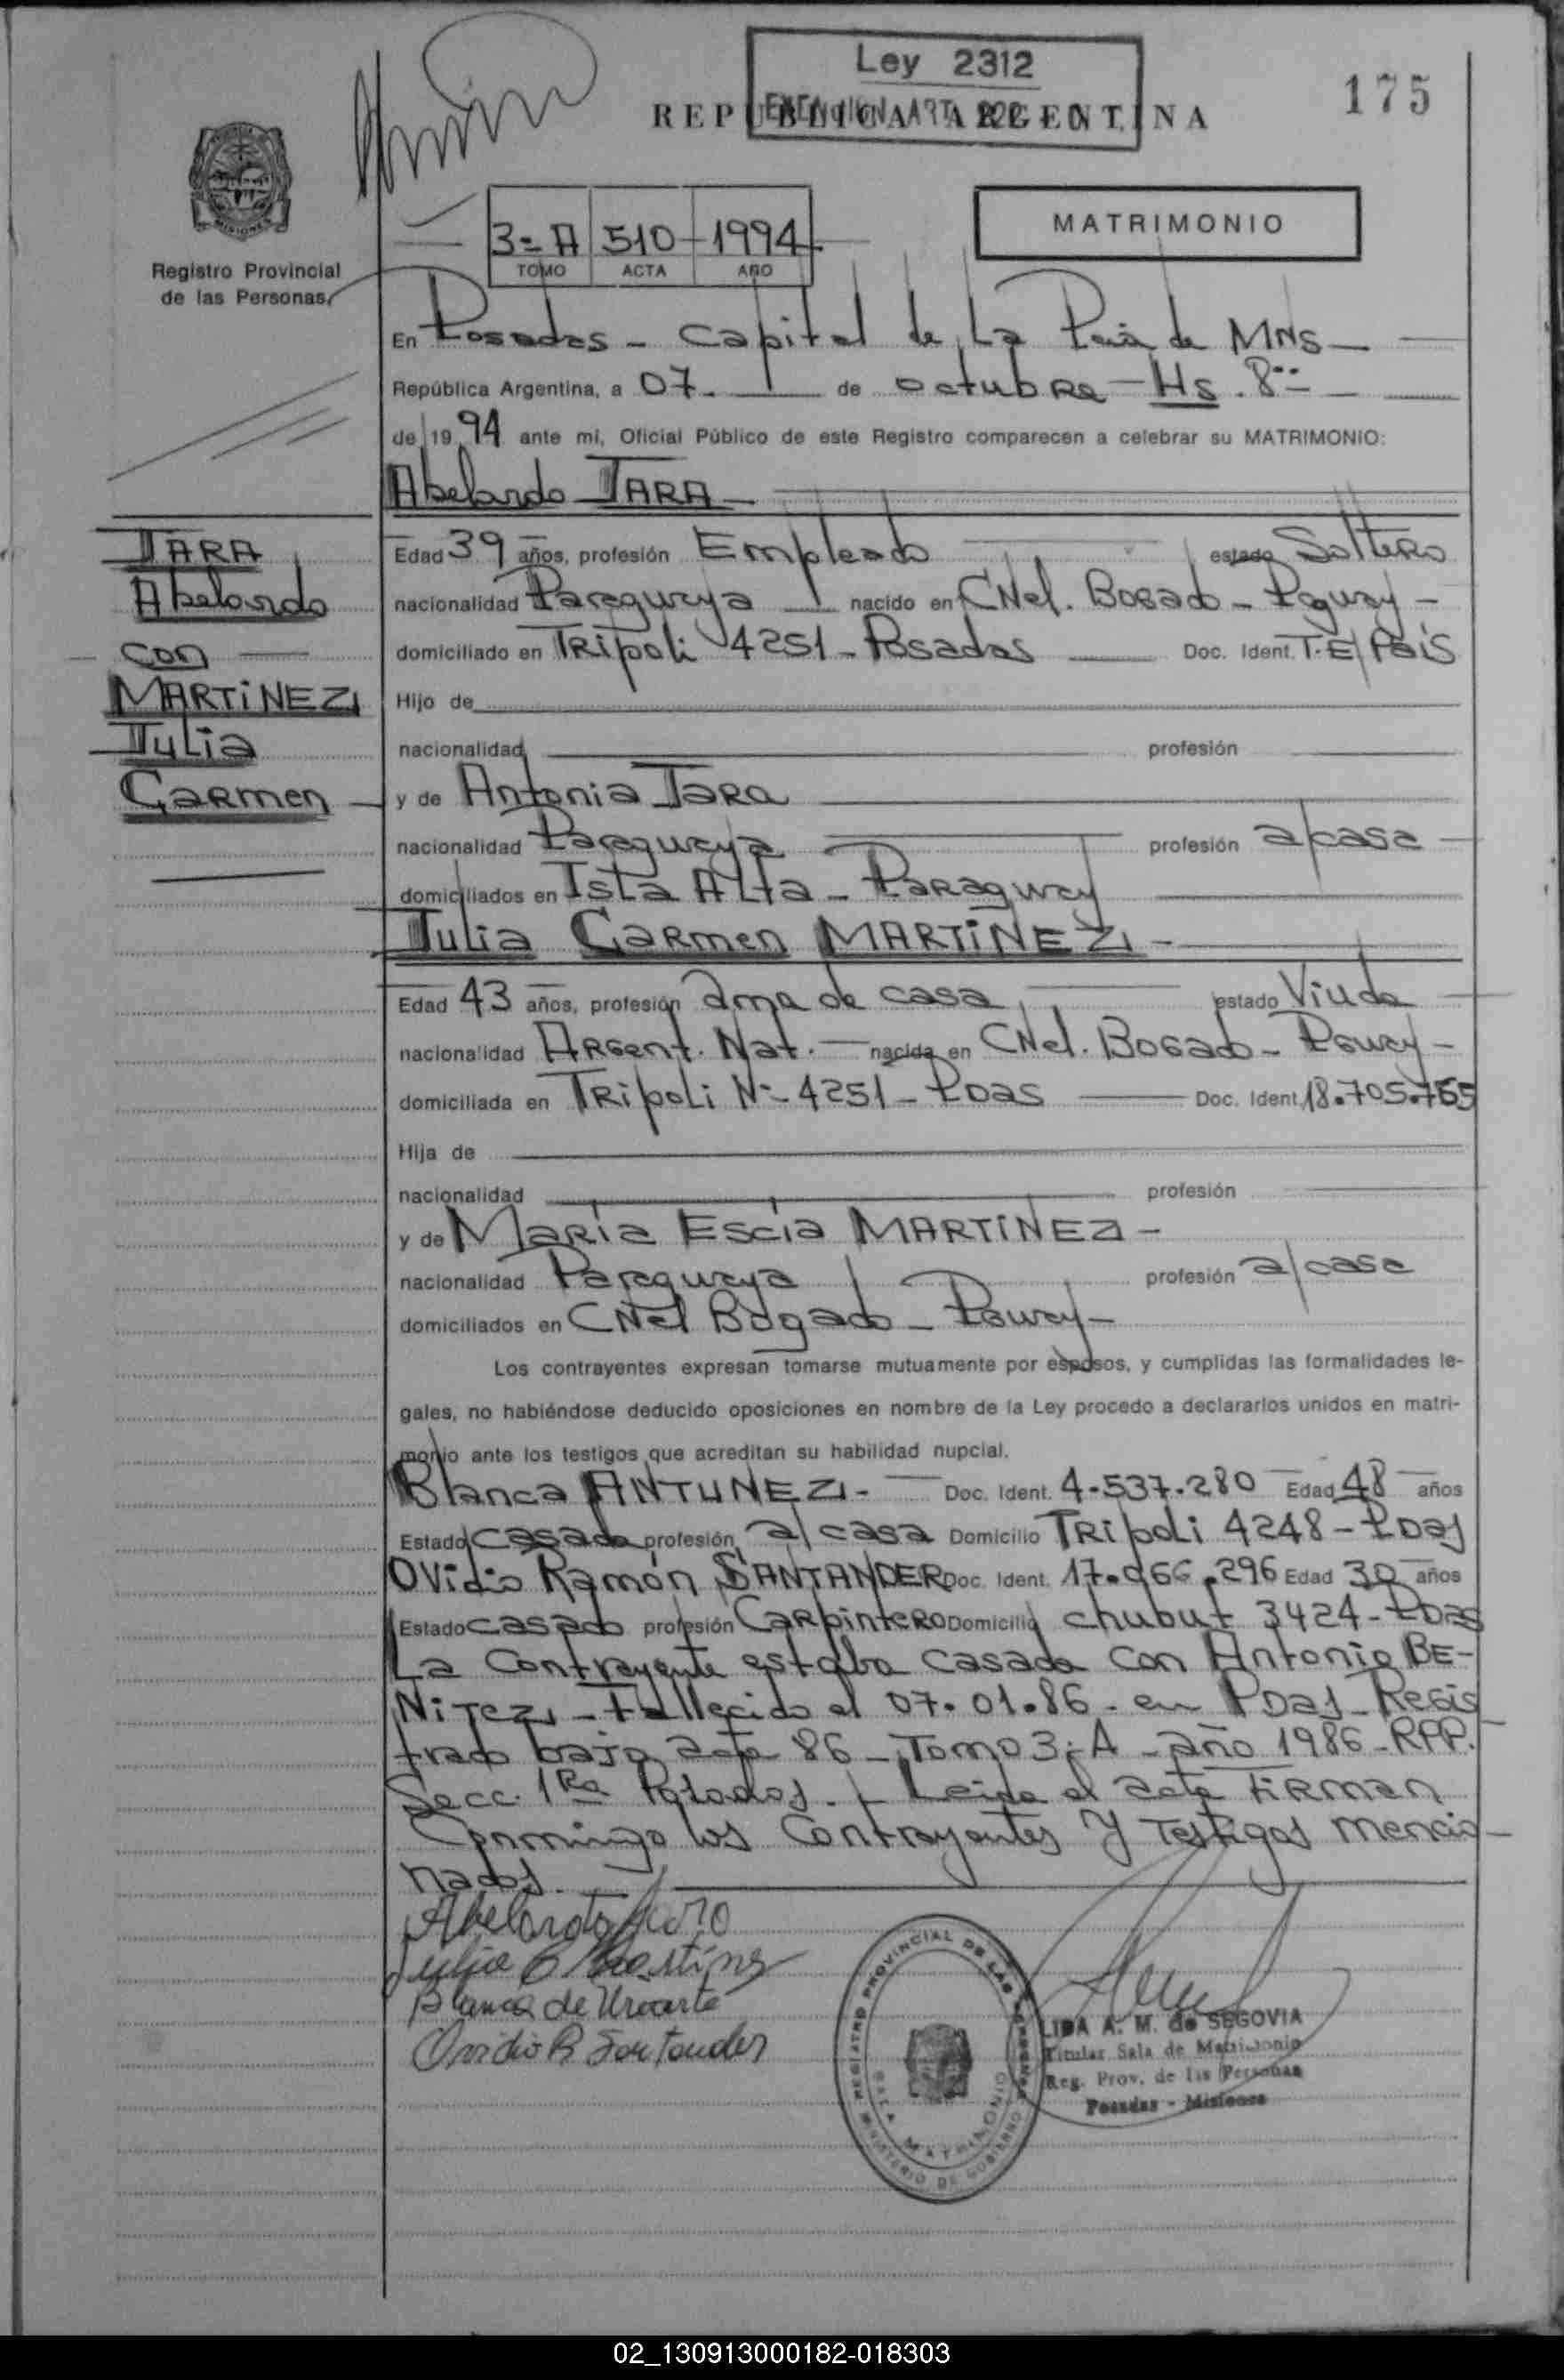 Ley 2312
REPUBLICA ARGENTINA
175
3=A 510 1994
TOMO ACTA AÑO
MATRIMONIO
MISIONES
Registro Provincial
de las Personas
En Posadas - Capital de La Pcia de MNS
República Argentina, a 07. de octubre - Hs. 8
de 19 94 ante mi, Oficial Público de este Registro comparecen a celebrar su MATRIMONIO:
Abelardo JARA
JARA
Abelardo
con
MARTiNEZ
Julia
Carmen
Edad 39 años, profesión Empleado estado Soltero
nacionalidad Paraguaya nacido en CNel. Bogado - Pguay -
domiciliado en Tripoli 4251 - Posadas Doc. Ident. T.E/País
Hijo de
nacionalidad profesión
y de Antonia Jara
nacionalidad Paraguaya profesión a/casa
domiciliados en Isla Alta - Paraguay
Julia Carmen MARTiNEZ -
Edad 43 años, profesión ama de casa estado Viuda
nacionalidad Argent. Nat. nacida en CNel. Bogado - Pguay -
domiciliada en Tripoli Nº 4251 - Pdas Doc. Ident. 18.705.765
Hija de
nacionalidad profesión
y de María Escia MARTíNEZ -
nacionalidad Paraguaya profesión a/casa
domiciliados en CNel Bogado - Pguay -
Los contrayentes expresan tomarse mutuamente por esposos, y cumplidas las formalidades le-
gales, no habiéndose deducido oposiciones en nombre de la Ley procedo a declararlos unidos en matri-
monio ante los testigos que acreditan su habilidad nupcial.
Blanca ANTUNEZ - Doc. Ident. 4.537.280 Edad 48 años
Estado casada profesión a/casa Domicilio Tripoli 4248 - Pdas
Ovidio Ramón SANTANDER Doc. Ident. 17.966.296 Edad 30 años
Estado casado profesión Carpintero Domicilio chubut 3424 - Pdas
La Contrayente estaba casada con Antonio BE-
NiTez - fallecido el 07.01.86 - en Pdas - Regis
trado bajo acta 86 - Tomo 3: A - año 1986 - RPP.
Secc. 1Ra Posadas. - Leida el acta firman
Conmigo los Contrayentes y testigos mencio
nados.
Abelardo Jara
Julia C Martínez
Blanca de Uriarte
Ovidio R Santander
REGISTRO PROVINCIAL DE LAS PERSONAS
SALA MATRIMONIO
MINISTERIO DE GOBIERNO
LIDA A. M. de SEGOVIA
Titular Sala de Matrimonio
Reg. Prov. de las Personas
Posadas - Misiones
02_130913000182-018303